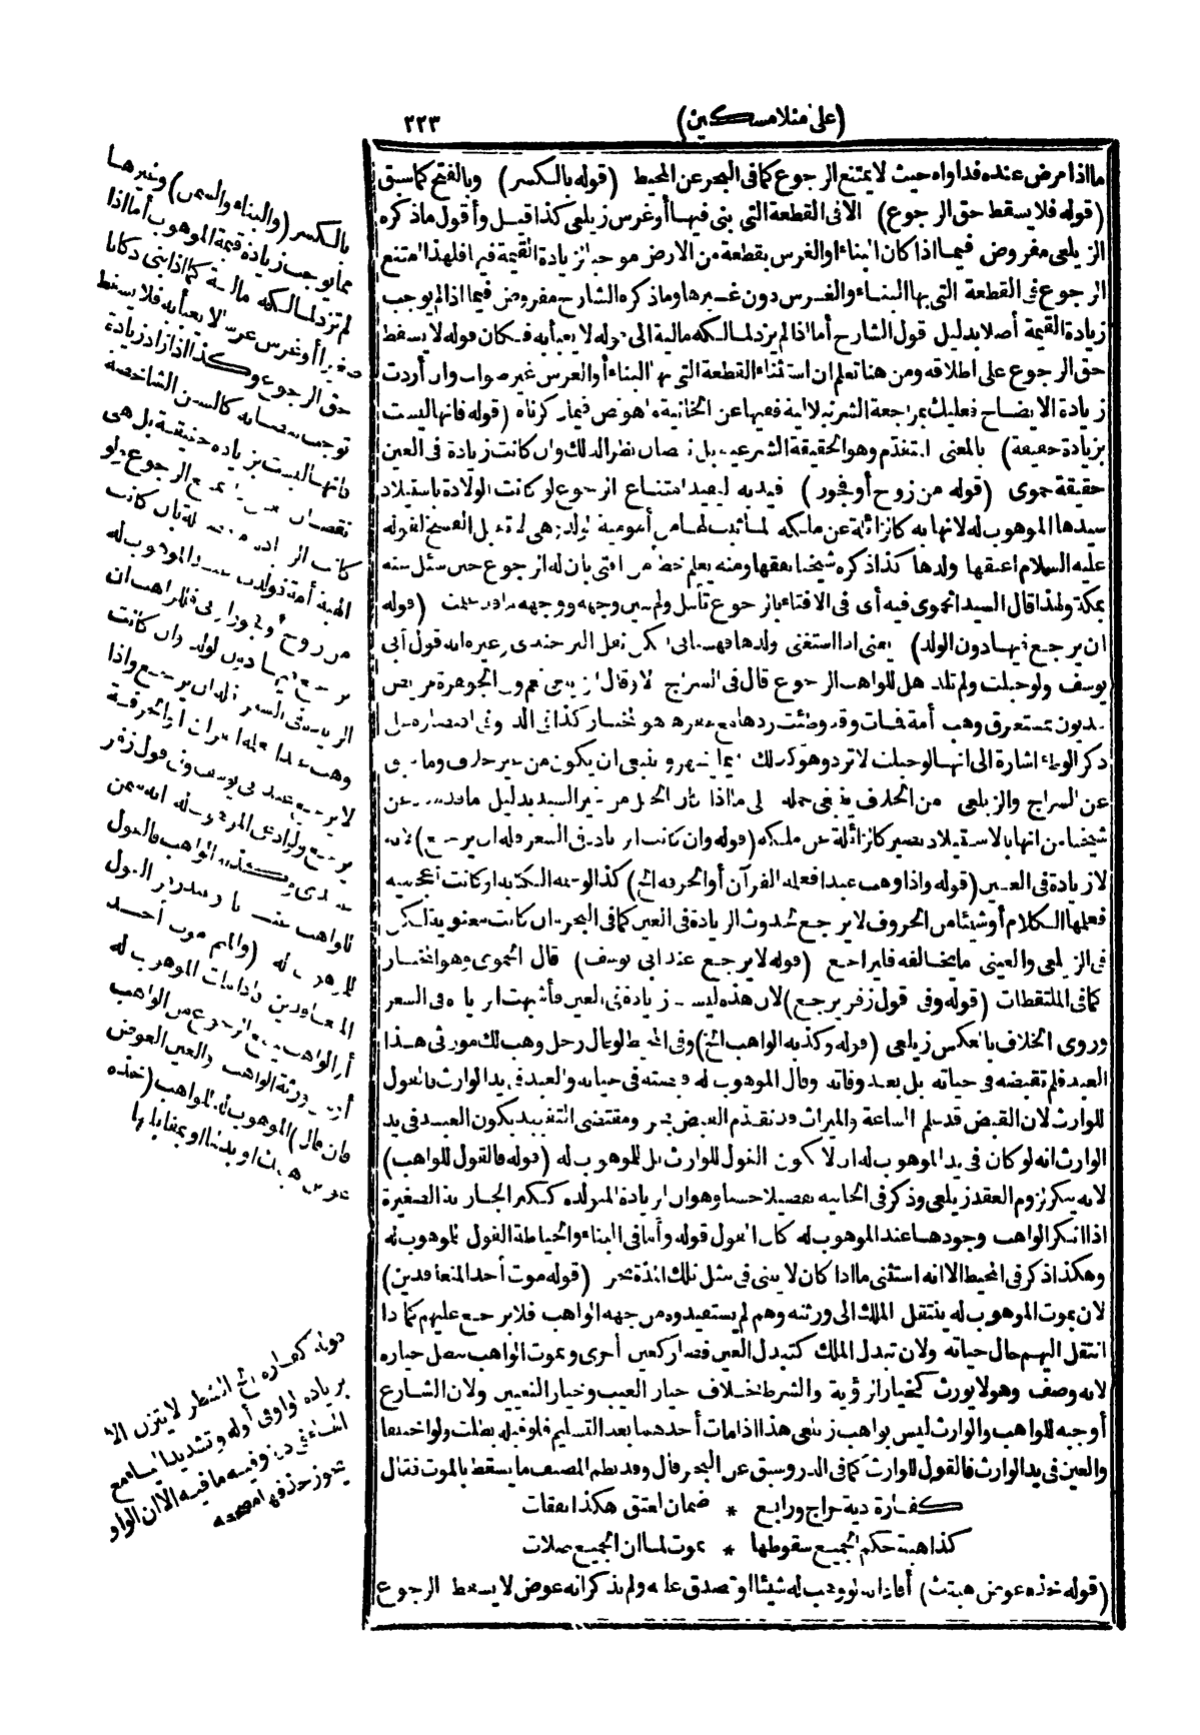 (على منلا مسكين) ٢٢٣
ما اذا مرض عنده فداواه حيث لا يمتنع الرجوع كما فى البحر عن المحيط (قوله بالكسر) وبالفتح كما سبق
(قوله فلا يسقط حق الرجوع) الا فى القطعة التى بنى فيها أو غرس زيلعى كذا قيل وأقول ما ذكره
الزيلعى مفروض فيما اذا كان البناء او الغرس بقطعة من الارض موجبا لزيادة القيمة فيها فلهذا امتنع
الرجوع فى القطعة التى بها البناء والغرس دون غيرها وما ذكره الشارح مفروض فيما اذا لم يوجب
زيادة القيمة أصلا بدليل قول الشارح أما اذا لم يزد لمالكه مالية الى قوله لا يعبأ به فكان قوله لا يسقط
حق الرجوع على اطلاقه ومن هنا تعلم ان استثناء القطعة التى بها البناء أو الغرس غير صواب وان أردت
زيادة الايضاح فعليك بمراجعة الشرنبلالية ففيها عن الخانية ما هو نص فيما ذكرناه (قوله فانها ليست
بزيادة حقيقة) بالمعنى المتقدم وهو الحقيقة الشرعية بل نقصان نظرا لذلك وان كانت زيادة فى العين
حقيقة حموى (قوله من زوج أو فجور) قيد به ليفيد امتناع الرجوع لو كانت الولادة باستيلاد
سيدها الموهوب له لانها به كالزائلة عن ملكه لما ثبت لها من أمومية الولد وهى لا تقبل الفسخ لقوله
عليه السلام اعتقها ولدها كذا ذكره شيخنا تفقها ومنه يعلم خطأ من افتى بان له الرجوع حين سئل عنه
بمكة ولهذا قال السيد الحموى فيه أى فى الافتاء بالرجوع تأمل ولم يبين وجهه ووجهه ما قد علمت (قوله
ان يرجع فيها دون الولد) يعنى اذا استغنى ولدها قهستانى لكن نقل البرجندى وغيره انه قول أبى
يوسف ولو حبلت ولم تلد هل للواهب الرجوع قال فى السراج لا وقال الزيلعى نعم وفى الجوهرة مريض
مديون بمستغرق وهب أمة فمات وقد وطئت ردها مع عقرها هو المختار كذا فى الدر وفى اقتصاره على
ذكر الوطء اشارة الى انها لو حبلت لا ترد وهو كذلك
عن السراج والزيلعى من الخلاف ينبغى حمله على ما اذا كان الحبل من غير السيد بدليل ما قدمناه عن
شيخنا من انها بالاستيلاد تصير كالزائلة عن ملكه (قوله وان كانت الزيادة فى السعر فله ان يرجع) لانه
لا زيادة فى العين (قوله واذا وهب عبدا فعلمه القرآن أو الحرفة الخ) كذا لو علمه الكتابة او كانت أعجمية
فعلمها الكلام أو شيئا من الحروف لا يرجع لحدوث الزيادة فى العين كما فى البحر وان كانت معنوية لكن
فى الزيلعى والعينى ما يخالفه فليراجع (قوله لا يرجع عند ابى يوسف) قال الحموى وهو المختار
كما فى الملتقطات (قوله وفى قول زفر يرجع) لان هذه ليست زيادة فى العين فأشبهت الزيادة فى السعر
وروى الخلاف بالعكس زيلعى (قوله وكذبه الواهب الخ) وفى المحيط لو قال رجل وهب لك مورثى هذا
العبد فلم تقبضه فى حياته بل بعد وفاته وقال الموهوب له قبضته فى حياته والعبد فى يد الوارث فالقول
للوارث لان القبض قد علم الساعة والميراث قد تقدم القبض بحر ومقتضى التقييد بكون العبد فى يد
الوارث انه لو كان فى يد الموهوب له ان لا يكون القول للوارث بل للموهوب له (قوله فالقول للواهب)
لانه ينكر لزوم العقد زيلعى وذكر فى الخانية تفصيلا حسنا وهو ان الزيادة المتولدة ككبر الجارية الصغيرة
اذا انكر الواهب وجودها عند الموهوب له كان القول قوله وأما فى البناء والخياطة القول للموهوب له
وهكذا ذكر فى المحيط الا انه استثنى ما اذا كان لا يبنى فى مثل تلك المدة بحر (قوله موت أحد المتعاقدين)
لان بموت الموهوب له ينتقل الملك الى ورثته وهم لم يستفيدوه من جهة الواهب فلا يرجع عليهم كما اذا
انتقل اليهم حال حياته ولان تبدل الملك كتبدل العين فصار كعين أخرى وبموت الواهب يبطل خياره
لانه وصف وهو لا يورث كخيار الرؤية والشرط بخلاف خيار العيب وخيار التعيين ولان الشارع
أوجبه للواهب والوارث ليس بواهب زيلعى هذا اذا مات أحدهما بعد التسليم فلو قبله بطلت ولو اختلفا
والعين فى يد الوارث فالقول للوارث كما فى الدر وسبق عن البحر قال وقد نظم المصنف ما يسقط بالموت فقال
كفارة دية خراج ورابع * ضمان لعتق هكذا نفقات
كذا هبة حكم الجميع سقوطها * بموت لما ان الجميع صلات
(قوله خذه عوض هبتك) أفاد انه لو وهب له شيئا او تصدق عليه ولم يذكر انه عوض لا يسقط الرجوع
بالكسر (والبناء والسمن) وغيرها
مما يوجب زيادة قيمة الموهوب أما اذا
لم تزد لمالكه مالية كما اذا بنى دكانا
صغيرا أو غرس غرسا لا يعبأ به فلا يسقط
حق الرجوع وكذا اذا زاد زيادة
توجب نقصانه كالسن الشاخصة
فانها ليست بزيادة حقيقة بل هى
نقصان فلا يمنع الرجوع ولو
كانت الزيادة منفصلة بان كانت
الهبة أمة فولدت عند الموهوب له
من زوج او فجور فللواهب ان
يرجع فيها دون الولد وان كانت
الزيادة فى السعر فله ان يرجع واذا
وهب عبدا فعلمه القرآن أو الحرفة
لا يرجع عند ابى يوسف وفى قول زفر
يرجع ولو ادعى الموهوب له انه سمن
عندى وكذبه الواهب فالقول
للواهب
للموهوب له (والميم موت أحد
المتعاقدين) فاذا مات الموهوب له
أو الواهب يمنع الرجوع من الواهب
أو من ورثة الواهب (والعين العوض
فان قال) الموهوب له للواهب (خذه
عوض هبتك او بدلها او بمقابلتها
قوله كفارة الخ الشطر لا يتزن الا
بزيادة واو فى أوله وتشديد الياء مع
التاء فى دية وفيه ما فيه الا ان الواو
يجوز حذفها اه مصححه